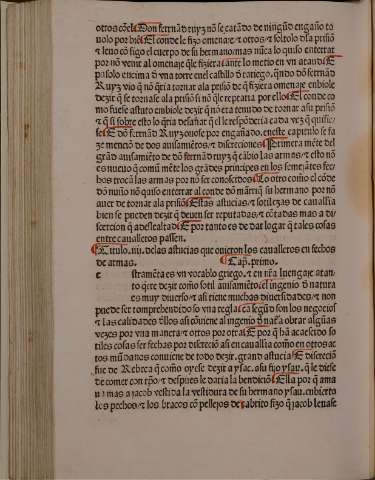 otros cõel Don fernãd ruyz nõ se catãdo de ningũd engaño to
uolo por biẽ El conde le fizo omenaje ⁊ otros ⁊ soltolo dla prisiõ
⁊ leuo cõsigo el cuerpo de su hermano mas nũca lo quiso enterrar
por nõ venir al omenaje q̃le fiziera ante lo metio en vn ataud E
pusolo encima d vna torre enel castillo ðtariego. q̃ndo dõ fernãd
Ruyz vio q̃ nõ q̃ria tornar ala prisiõ de q̃ fiziera omenaje enbiole
dezir q̃ se tornase ala prisiõ si nõ q̃le reptaria por ello El conde co
mo fuese astuto enbiole dezir q̃ nõ era tenudo de tornar a su prisiõ
⁊ q̃ si sobre esto lo q̃ria desafiar q̃ el le respõderia cada vez q̃ quisie
se E dõ fernãd Ruyz ouose por engañado. eneste capitulo se fa
ze menciõ de dos auisamiẽtos ⁊ discreciones Primera mẽte del
grãd auisamiẽto de dõ fernãd ruyz q̃ cãbio las armas ⁊ esto nõ
es nueuo q̃ comũ mẽte los grãdes principes en los semejãtes fec
hos trocã las armas por nõ ser conoscidos Lo otro coño el cõde
dõ nuño nõ quiso enterrar al conde dõ mãriq̃ su hermano por nõ
auer de tornar ala prisiõ Estas astucias ⁊ sotilezas de cauallia
bien se pueden dezir q̃ deuen ser reputadas ⁊ cõtadas mas a di
screcion q̃ a deslealtad E por tanto es de dar logar q̃ tales cosas
entre caualleros passen.
Titulo .iiij. delas astucias que ouieron los caualleros en fechos
de armas. Cap. primo.
e stramẽta es vn vocablo griego. ⁊ en ñra luengaje atan
to q̃re dezir coño sotil auisamiẽto el ingenio d natura
es muy diuerso ⁊ asi tiene muchas diuersidades ⁊ non
puede ser tomprehendido so vna regla ca segũ son los negocios
⁊ las calidades dllos asi cõuiene al ingenio d nat̃a obrar algũas
vezes por vna manera ⁊ otros por otras E por q̃ hã acaescido so
tiles cosas ser fechas por discreciõ asi en cauallia coño en otros ac
tos mũdanos conuiene de todo dezir. grand astucia E discreciõ
fue de Rebeca q̃ coño oyese dezir a ysac. a su fijo ysau. q̃ le diese
de comer con tp̃o ⁊ despues le daria la bendiciõ Ella por q̃ ama
ua mas a jacob vestida la vestidura de su hermano ysau. cubierto
los pechos ⁊ los bracos cõ pellejos de cabrito fizo q̃ jacob leuase